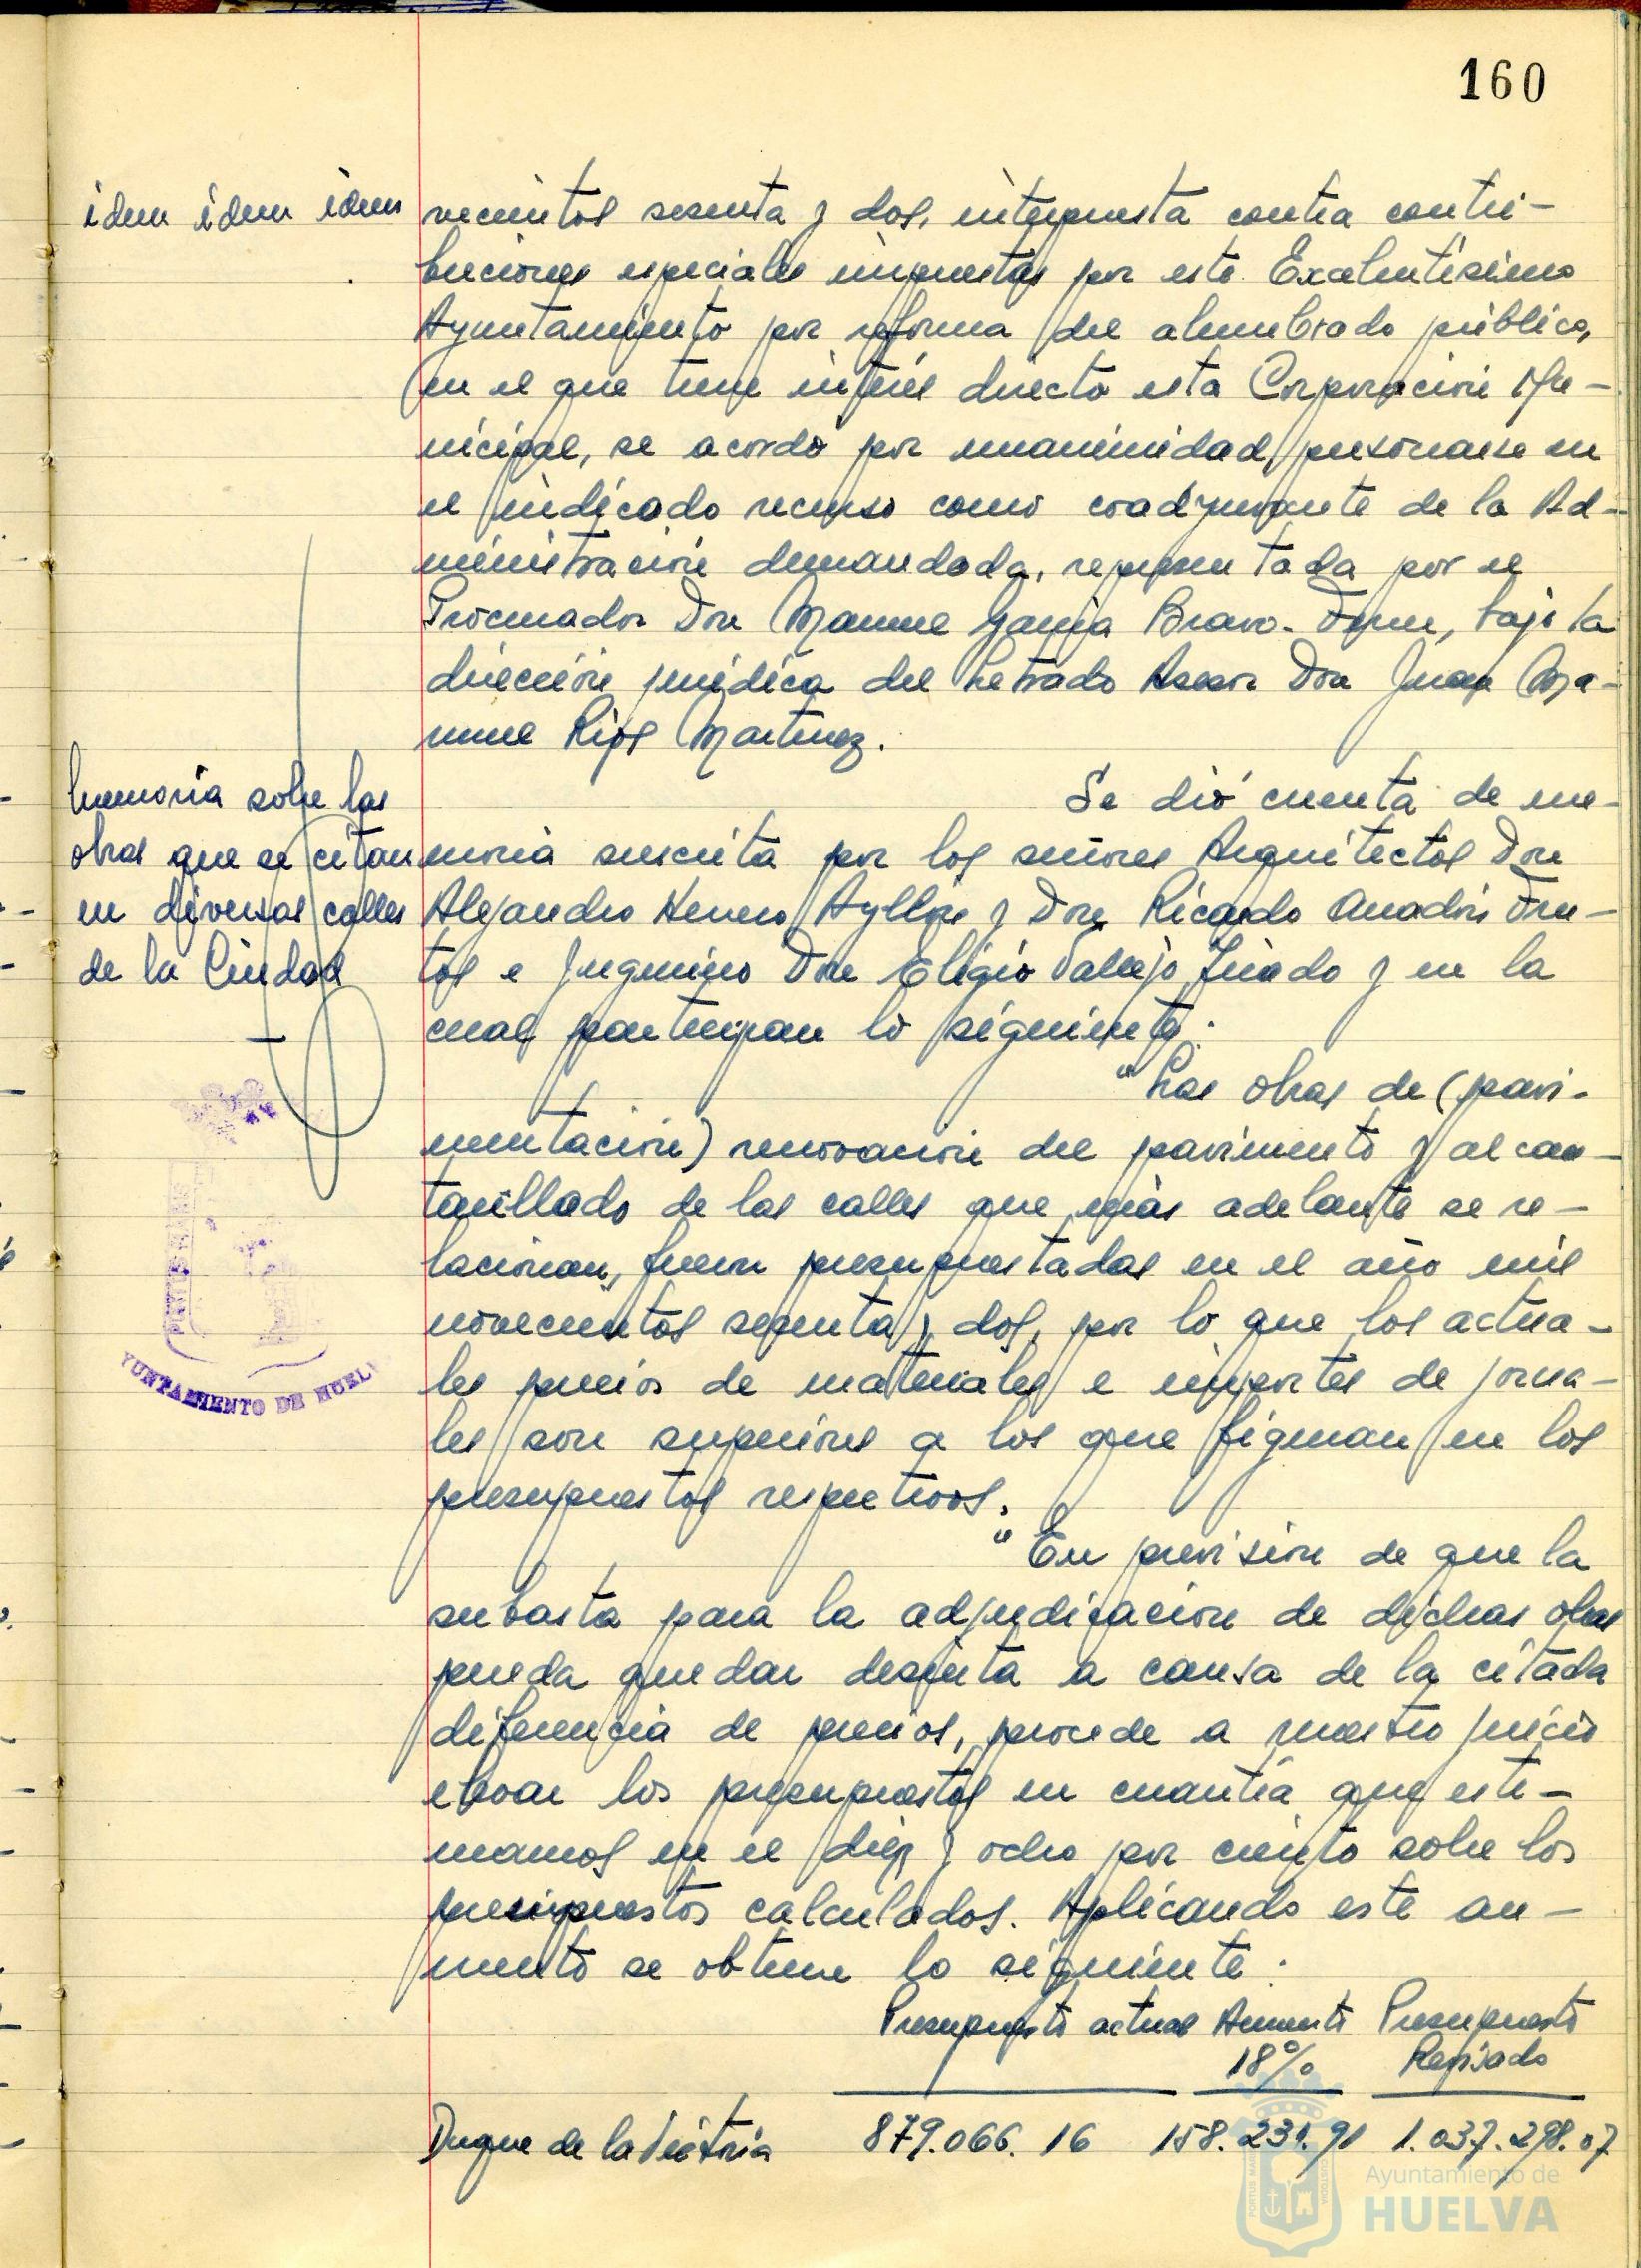 160
idem idem idem
vecientos sesenta y dos, interpuesta contra contri-
buciones especiales impuestas por este Excelentísimo
Ayuntamiento por reforma del alumbrado público,
en el que tiene interés directo esta Corporación Mu-
nicipal, se acordó por unanimidad, personarse en
el indicado recurso como coadyuvante de la Ad-
ministración demandada, representada por el
Procurador Don Manuel García Bravo-Ferrer, bajo la
dirección jurídica del Letrado Asesor Don Juan Ma-
nuel Ríos Martínez.
Memoria sobre las
obras que se citan
en diversas calles
de la Ciudad
Se dió cuenta de me-
moria suscrita por los señores Arquitectos Don
Alejandro Herrero Ayllón y Don Ricardo Anadón Fru-
tos e Ingeniero Don Eligio Vallejo Jurado y en la
cual participan lo siguiente:
"Las obras de (pavi-
mentación) renovación del pavimento y alcan-
tarillado de las calles que más adelante se re-
lacionan, fueron presupuestadas en el año mil
novecientos sesenta y dos, por lo que los actua-
les precios de materiales e importes de jorna-
les son superiores a los que figuran en los
presupuestos respectivos.
"En previsión de que la
subasta para la adjudicación de dichas obras
pueda quedar desierta a causa de la citada
diferencia de precios, procede a nuestro juicio
elevar los presupuestos en cuantía que esti-
mamos en el diez y ocho por ciento sobre los
presupuestos calculados. Aplicando este au-
mento se obtiene lo siguiente:
Presupuesto actual Aumento 18% Presupuesto Revisado
Duque de la Victoria 879.066.16 158.231.91 1.037.298.07
PORTUS MARIS
YUNTAMIENTO DE HUELV
Ayuntamiento de
HUELVA